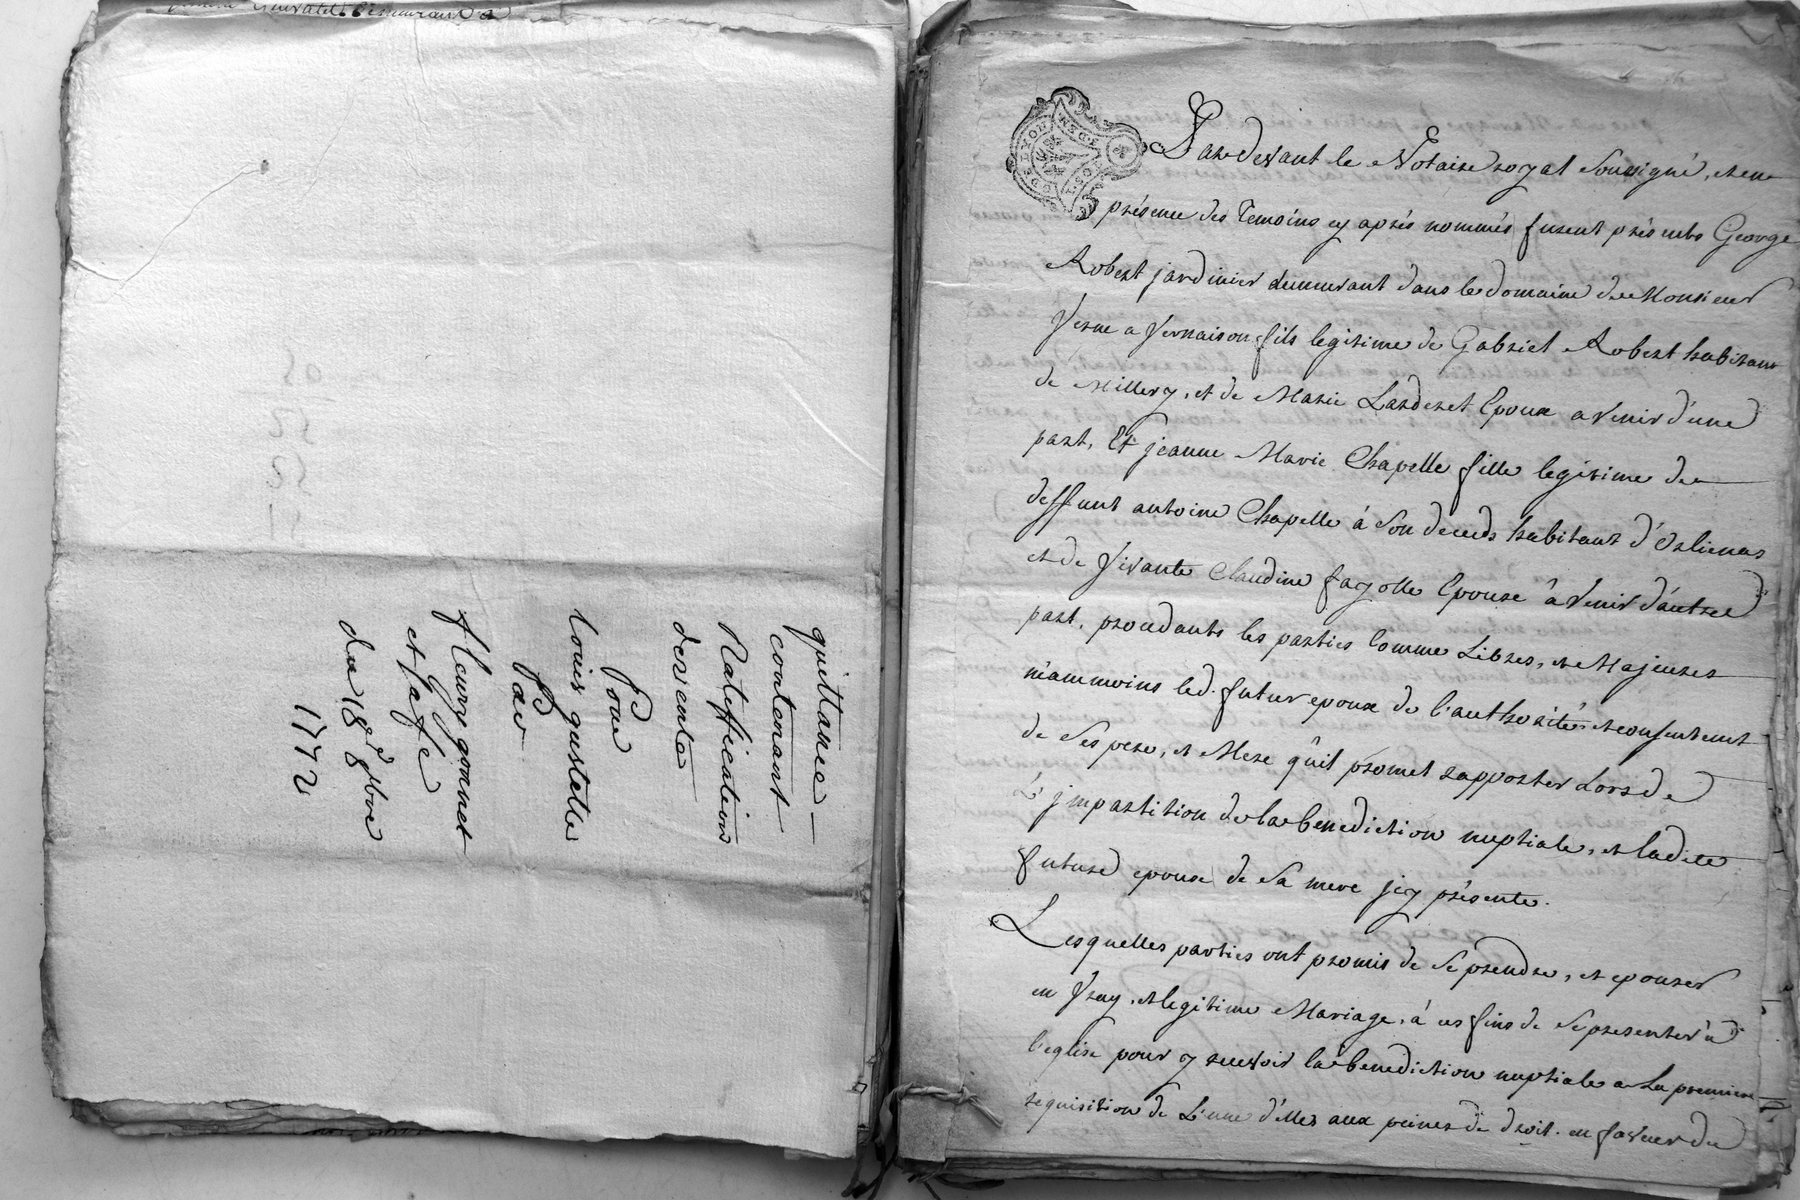 quittance
contenant
Ratiffication
de vente
Pour
louis gustelle
Par
fleury gonnet
et sa fe
du 18 9bre
1772
Pardevant le Notaire royal soussigné, et en
présence des Temoins cy aprés nommés furent présents George
Robert jardinier demeurant dans le domaine de Monsieur
Verne a Vernaison fils legitime de Gabriel Robert habitant
de Millery, et de Marie Larderet Epoux avenir d'une
part, Et jeanne Marie Chapelle fille legitime de
deffunt antoine Chapelle á son deceds habitant d'Orlienas
et de vivante Claudine fayolle Epouse á venir d'autre
part, procedants les parties Comme Libres, et Majeures
néammoins led. futur epoux de l'authorité et consentement
de ses pere, et Mere qu'il promet rapporter Lors de
L'impartition de la benediction nuptiale, et ladite
future epouse de sa mere icy présente.
Lesquelles parties ont promis de se prendre, et epouser
en vray, et legitime Mariage, á ces fins de se presenter á
l'eglise pour y recevoir la benediction nuptiale a La premiere
requisition de L'une d'elles aux peines de droit. en faveur du